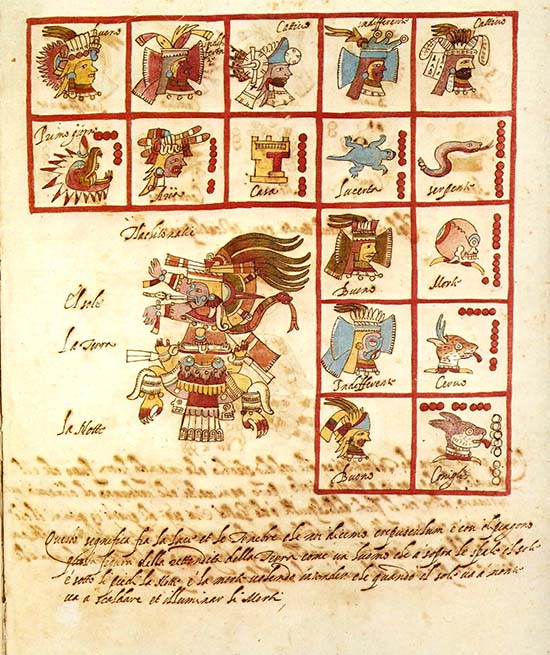 bueno
indifferente
Cattivo
indifferente
Cattivo
Primo giorno
Aiere
Casa
Lucerta
serpente
Tlachitonatie
Bueno
Morte
El sole
La Terra
Indifferente
Cervo
La Notte
Buono
Coniglio
Questo significa fra la luce et le Tenebre che noi dicemo crepusculum e con
questa figura della della Terra come un huomo che a sopra le spale el sole
e sotto le piedi la Notte e la morte volendo intender che quando el sole va a morte
va a scaldare et illuminar li Morti